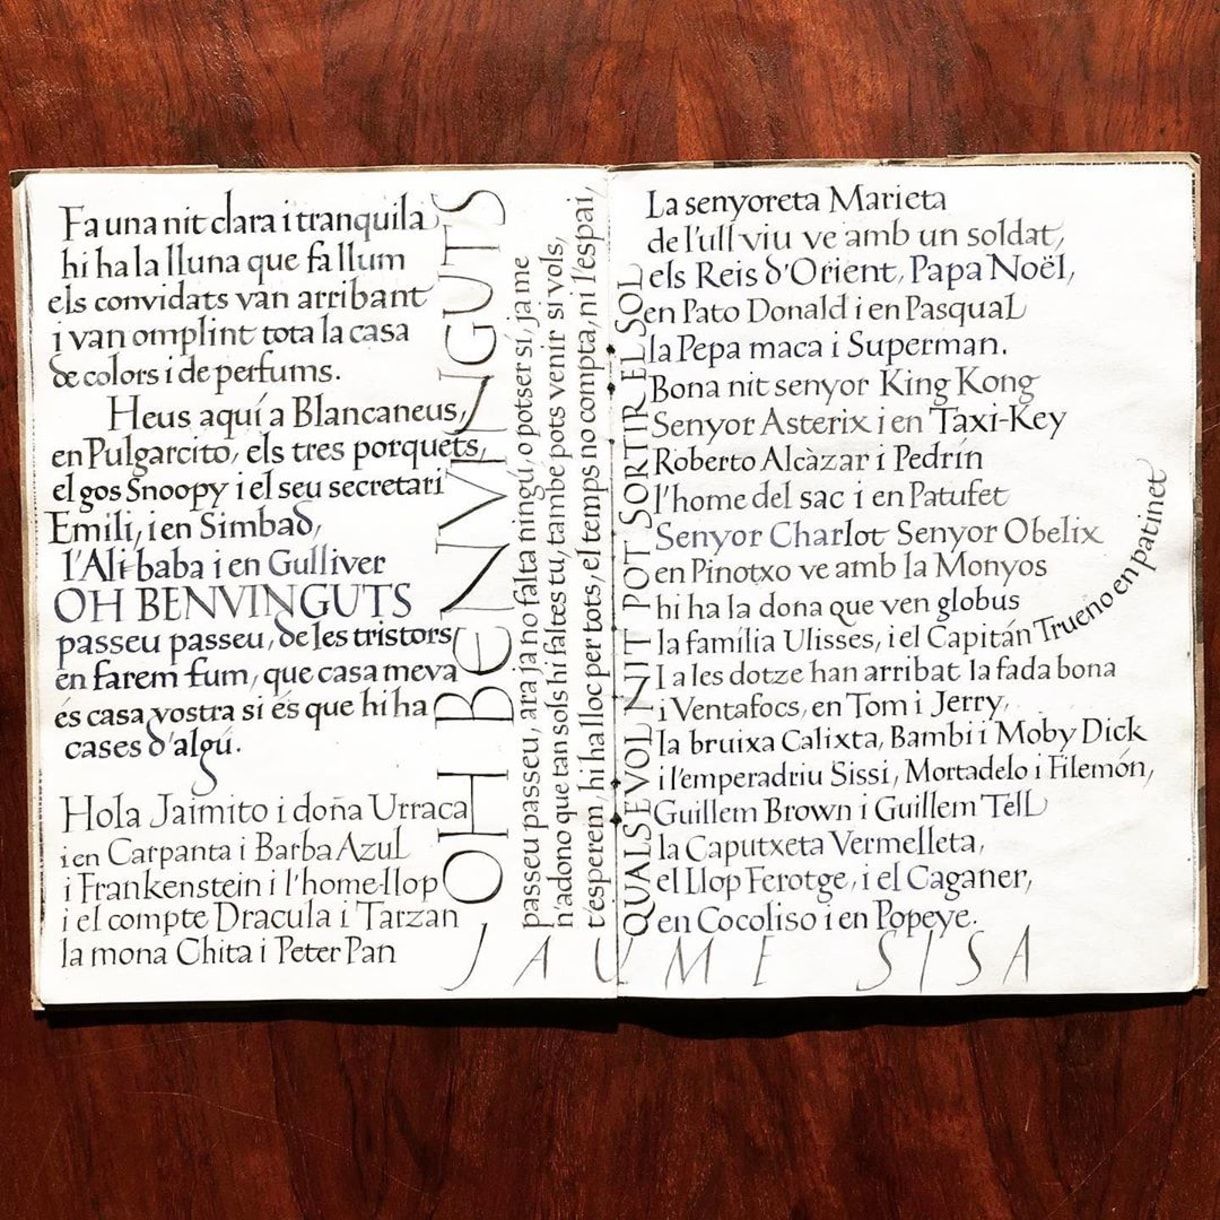 Fa una nit clara i tranquila
hi ha la lluna que fa llum
els convidats van arribant
i van omplint tota la casa
de colors i de perfums.
Heus aquí a Blancaneus,
en Pulgarcito, els tres porquets,
el gos Snoopy i el seu secretari
Emili, i en Simbad,
l'Ali-baba i en Gulliver
OH BENVINGUTS
passeu passeu, de les tristors
en farem fum, que casa meva
és casa vostra si és que hi ha
cases d'algú.
Hola Jaimito i doña Urraca
i en Carpanta i Barba Azul
i Frankenstein i l'home-llop
i el compte Dracula i Tarzan
la mona Chita i Peter Pan
OH BENVINGUTS
passeu passeu, ara ja no falta ningú, o potser sí, ja me
n'adono que tan sols hi faltes tu, també pots venir si vols,
t'esperem, hi ha lloc per tots, el temps no compta, ni l'espai,
QUALSEVOL NIT POT SORTIR EL SOL
La senyoreta Marieta
de l'ull viu ve amb un soldat,
els Reis d'Orient, Papa Noël,
en Pato Donald i en Pasqual
la Pepa maca i Superman.
Bona nit senyor King Kong
Senyor Asterix i en Taxi-Key
Roberto Alcàzar i Pedrín
l'home del sac i en Patufet
Senyor Charlot Senyor Obelix
en Pinotxo ve amb la Monyos
hi ha la dona que ven globus
la família Ulisses, i el Capitán Trueno en patinet
I a les dotze han arribat la fada bona
i Ventafocs, en Tom i Jerry,
la bruixa Calixta, Bambi i Moby Dick
i l'emperadriu Sissi, Mortadelo i Filemón,
Guillem Brown i Guillem Tell
la Caputxeta Vermelleta,
el Llop Ferotge, i el Caganer,
en Cocoliso i en Popeye.
JAUME SISA